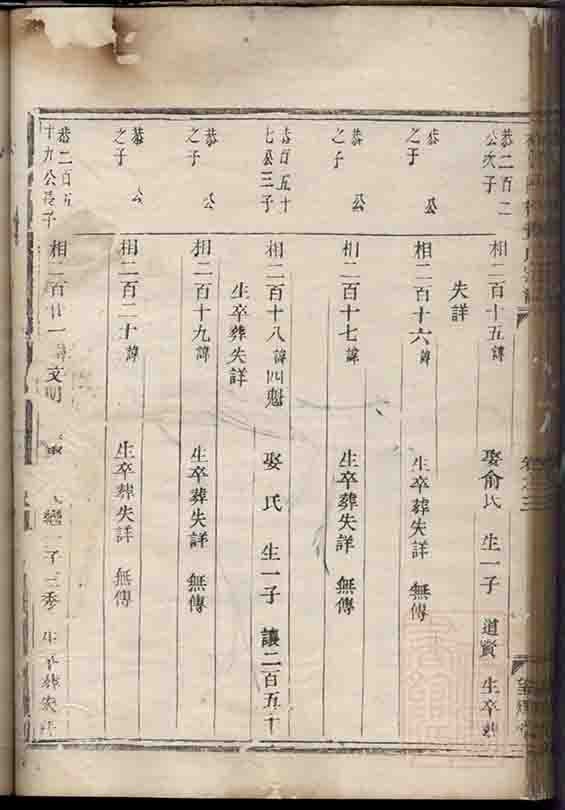 恭二百二
公次子
相二百十五諱 娶俞氏 生一子 道賢 生卒葬
失詳
恭 公
之子
相二百十六諱 生卒葬失詳 無傳
恭 公
之子
相二百十七諱 生卒葬失詳 無傳
恭百五十
七公三子
相二百十八諱四魁 娶 氏 生一子 讓二百五十
生卒葬失詳
恭 公
之子
相二百十九諱 生卒葬失詳 無傳
恭 公
之子
相二百二十諱 生卒葬失詳 無傳
恭二百五
十九公長子
相二百廿一諱文明 子三秀 生卒葬失詳